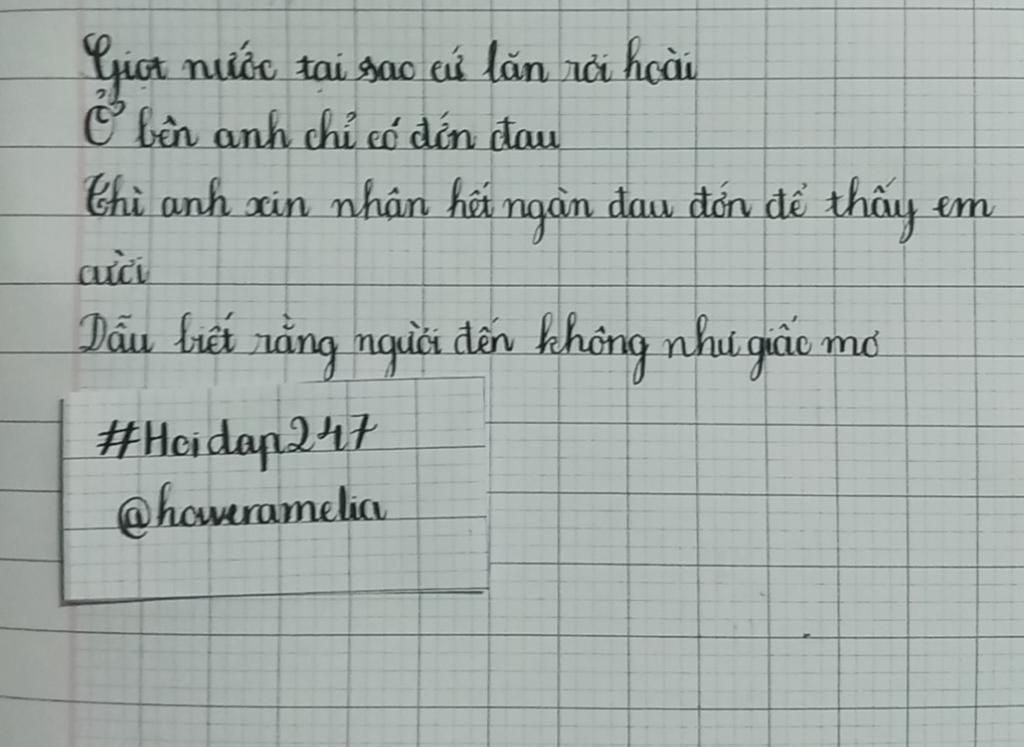 Giọt nước tại sao cứ lăn rơi hoài
Ở bên anh chỉ có đớn đau
Thì anh xin nhận hết ngàn đau đớn để thấy em
cười
Dẫu biết rằng người đến không như giấc mơ
#Hoidap247
@howeramelia